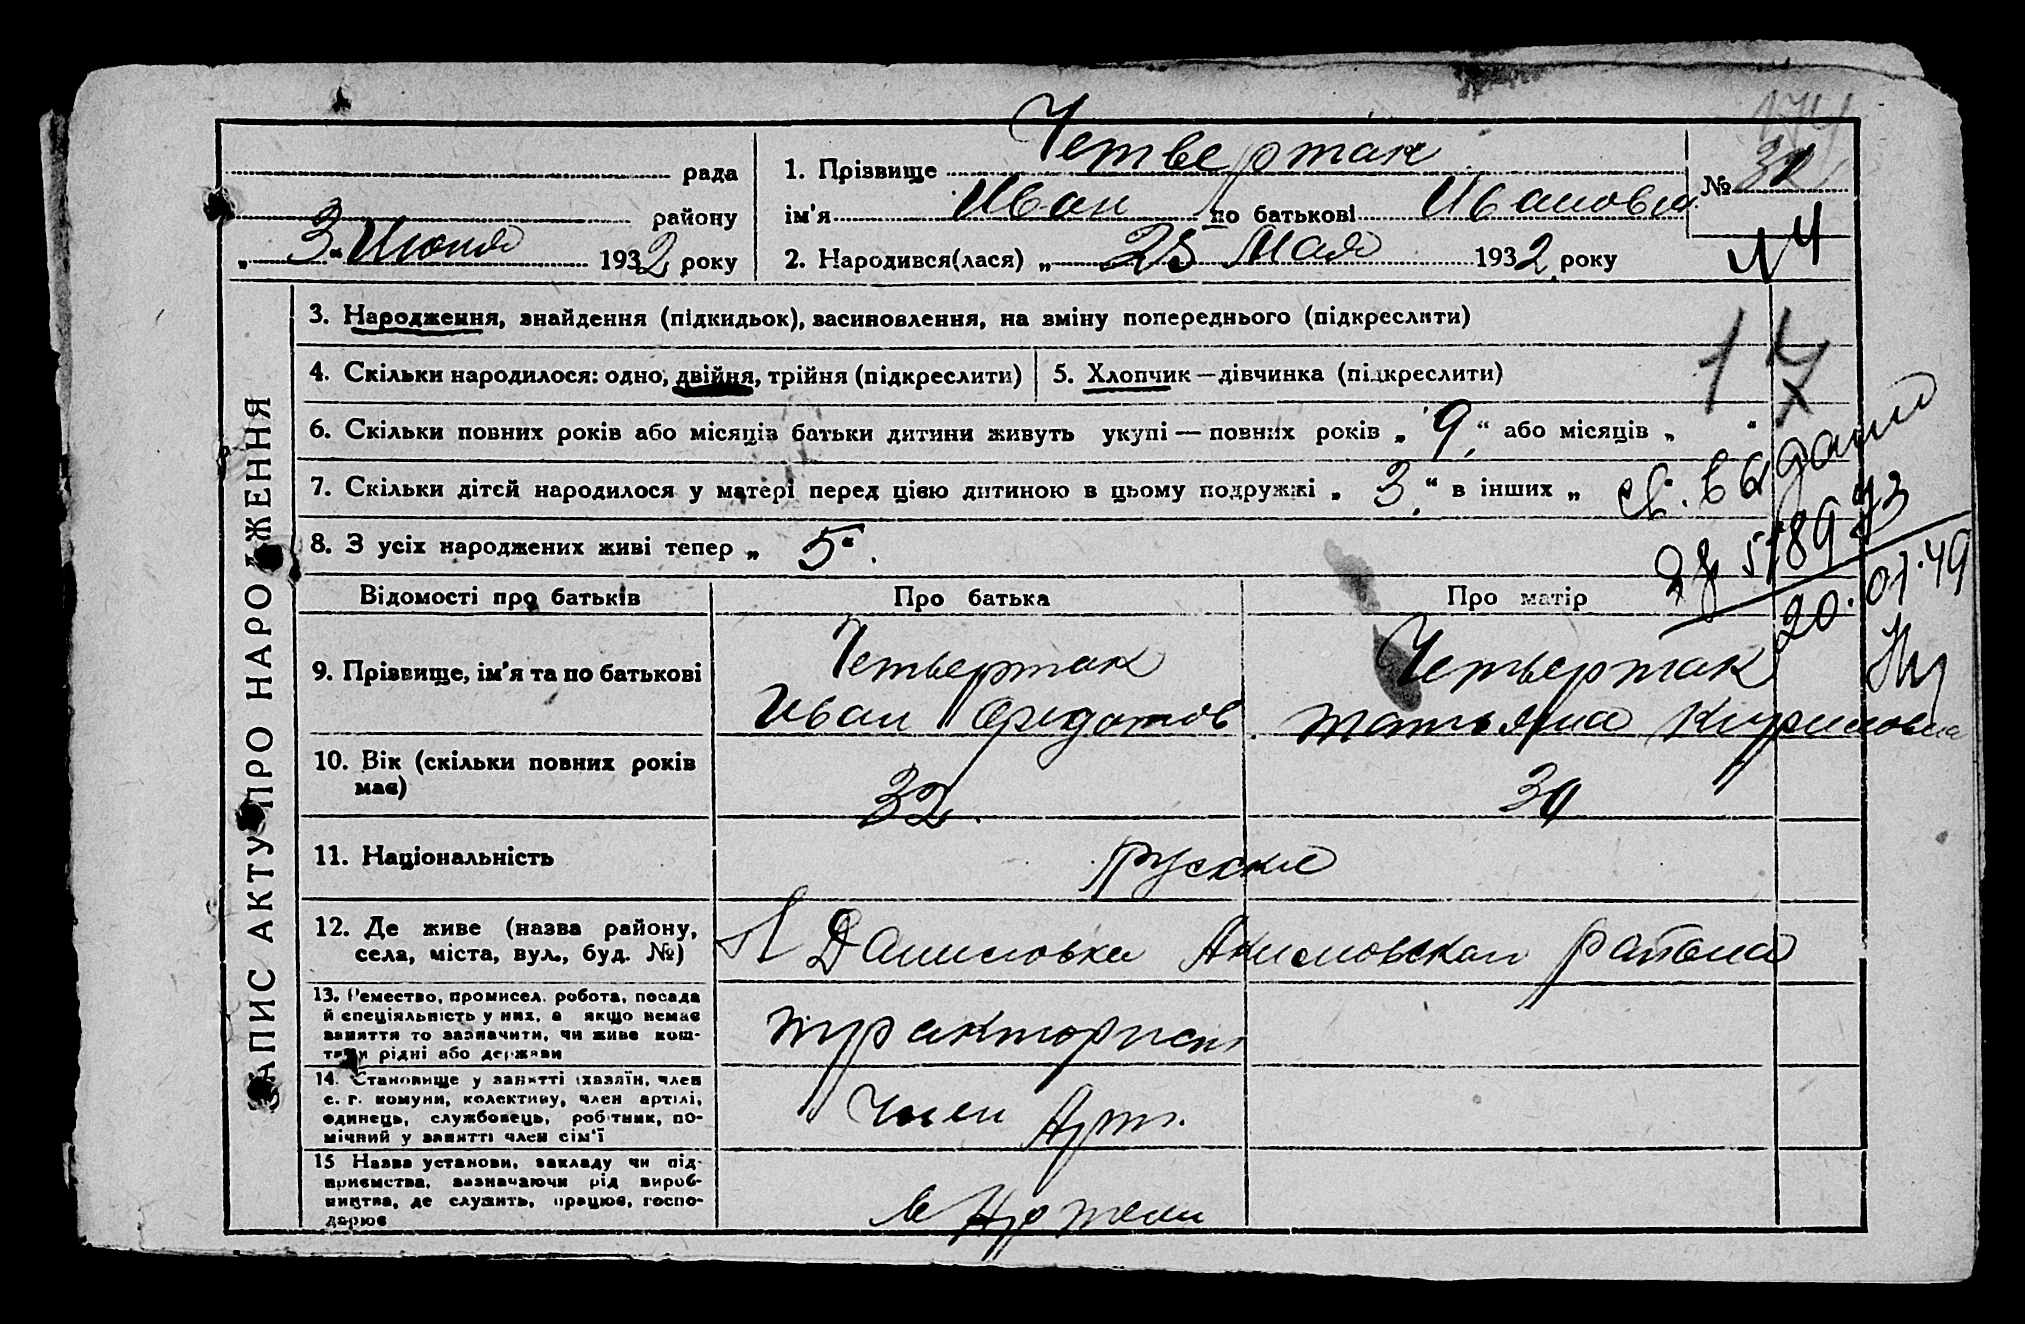 174
рада
району
„3“ Июня 1932 року
1. Прізвище Четвертак
ім'я Иван по батькові Иванович
2. Народився(лася) „ 25 Мая 1932 року
№ 31
14
ЗАПИС АКТУ ПРО НАРОДЖЕННЯ
3. Народження, знайдення (підкидьок), засиновлення, на зміну попереднього (підкреслити)
17
4. Скільки народилося: одно, двійня, трійня (підкреслити)
5. Хлопчик — дівчинка (підкреслити)
6. Скільки повних років або місяців батьки дитини живуть укупі — повних років „9“ або місяців „ “
7. Скільки дітей народилося у матері перед цією дитиною в цьому подружжі „3“ в інших „
8. З усіх народжених живі тепер „5“.
20.01.49
Відомості про батьків
Про батька
Про матір
9. Прізвище, ім'я та по батькові
Четвертак
Иван Федотов.
Четвертак
Татьяна Кириловна
10. Вік (скільки повних років
має)
32.
30
11. Національність
русские
12. Де живе (назва району,
села, міста, вул., буд. №)
Даниловка Акимовскаго района
13. Ремество, промисел. робота, посада
й спеціяльність у них, а якщо немає
заняття то зазначити, чи живе кош-
тами рідні або держави
тракторист
14. Становище у занятті хазяїн, член
с. г. комуни, колективу, член артілі,
одинець, службовець, робітник, по-
мічний у занятті член сім'ї
Член Арт.
15 Назва установи, закладу чи під-
приємства, зазначаючи рід вироб-
ництва, де служить, працює, госпо-
дарює
в Артели